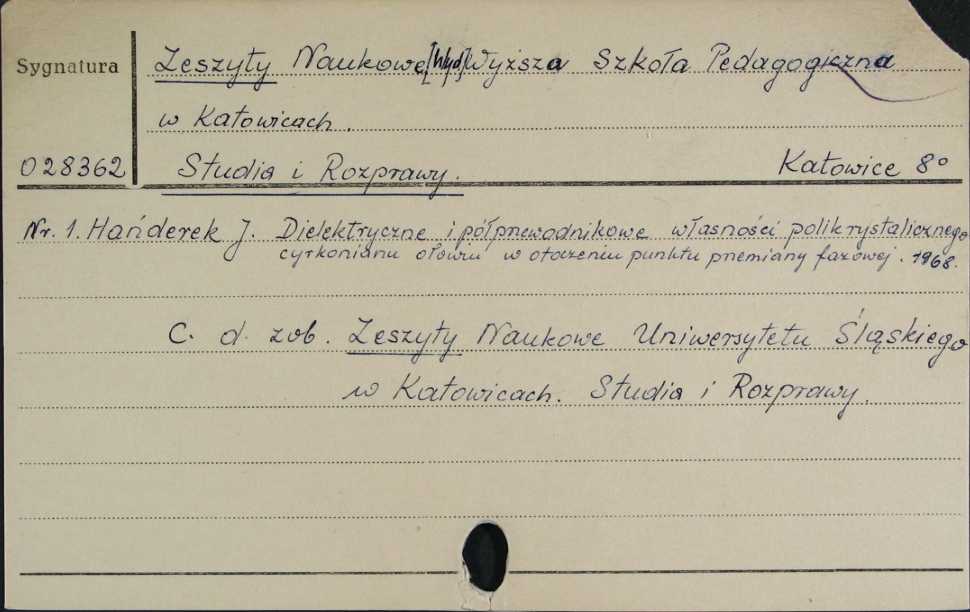 Sygnatura
Zeszyty Naukowe [Wyd] Wyższa Szkoła Pedagogiczna
w Katowicach.
028362 Studia i Rozprawy. Katowice 8°
Nr. 1. Hańderek J. Dielektryczne i półprzewodnikowe własności polikrystalicznego
cyrkonianu ołowiu w otoczeniu punktu przemiany fazowej. 1968.
C. d. zob. Zeszyty Naukowe Uniwersytetu Śląskiego
w Katowicach. Studia i Rozprawy.